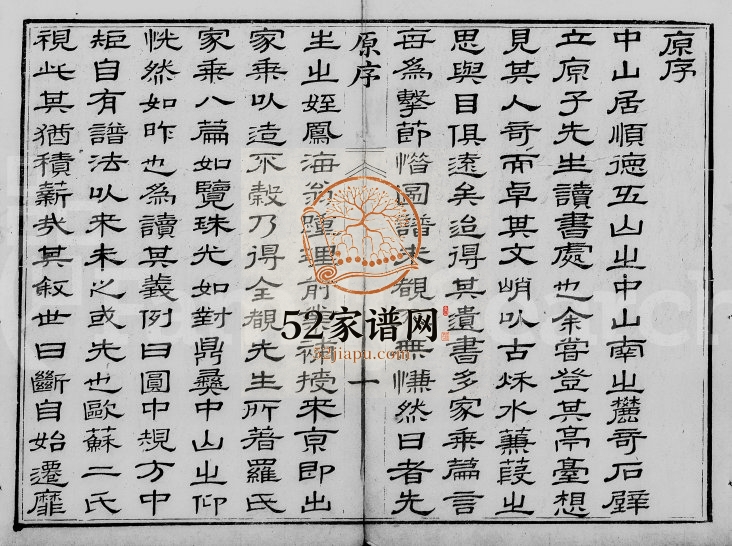 原序
中山居順德五山之中山南之麓奇石壁
立原子先生讀書處也余嘗登其亭臺想
見其人奇而卓其文峭以古秌水蒹葭之
思與目俱遠矣迨得其遺書多家乘篇言
每為擊節惜圖譜未覩 無慊然曰者先
原序
一
生之姪鳳海翁 理前 授來京即出
家乘以造不穀乃得全覩先生所著羅氏
家乘八篇如覽珠光如對鼎彝中山之仰
恍然如昨也為讀其義例曰圓中規方中
矩自有譜法以來未之或先也歐蘇二氏
視此其猶積薪哉其敘世曰斷自始遷靡
52家谱网
52jiapu.com